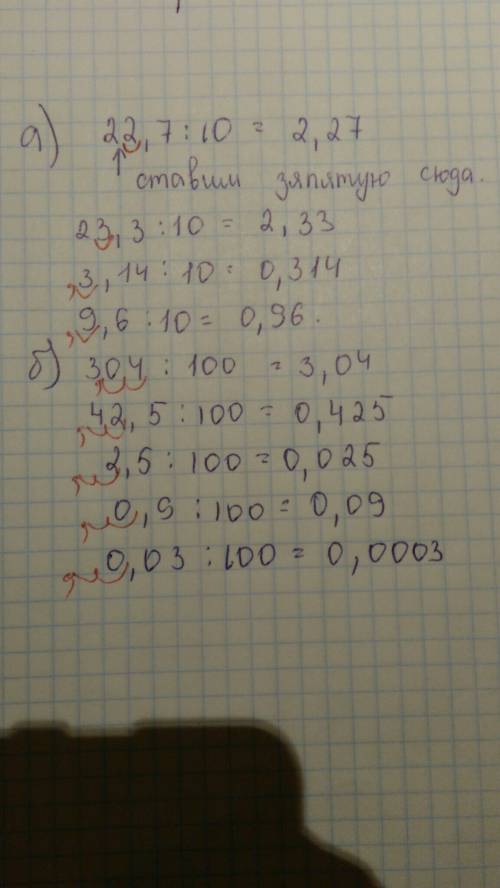 а) 22,7 : 10 = 2,27
ставим зяпятую сюда.
23,3 : 10 = 2,33
3,14 : 10 = 0,314
9,6 : 10 = 0,96.
б) 304 : 100 = 3,04
42,5 : 100 = 0,425
2,5 : 100 = 0,025
0,9 : 100 = 0,09
0,03 : 100 = 0,0003